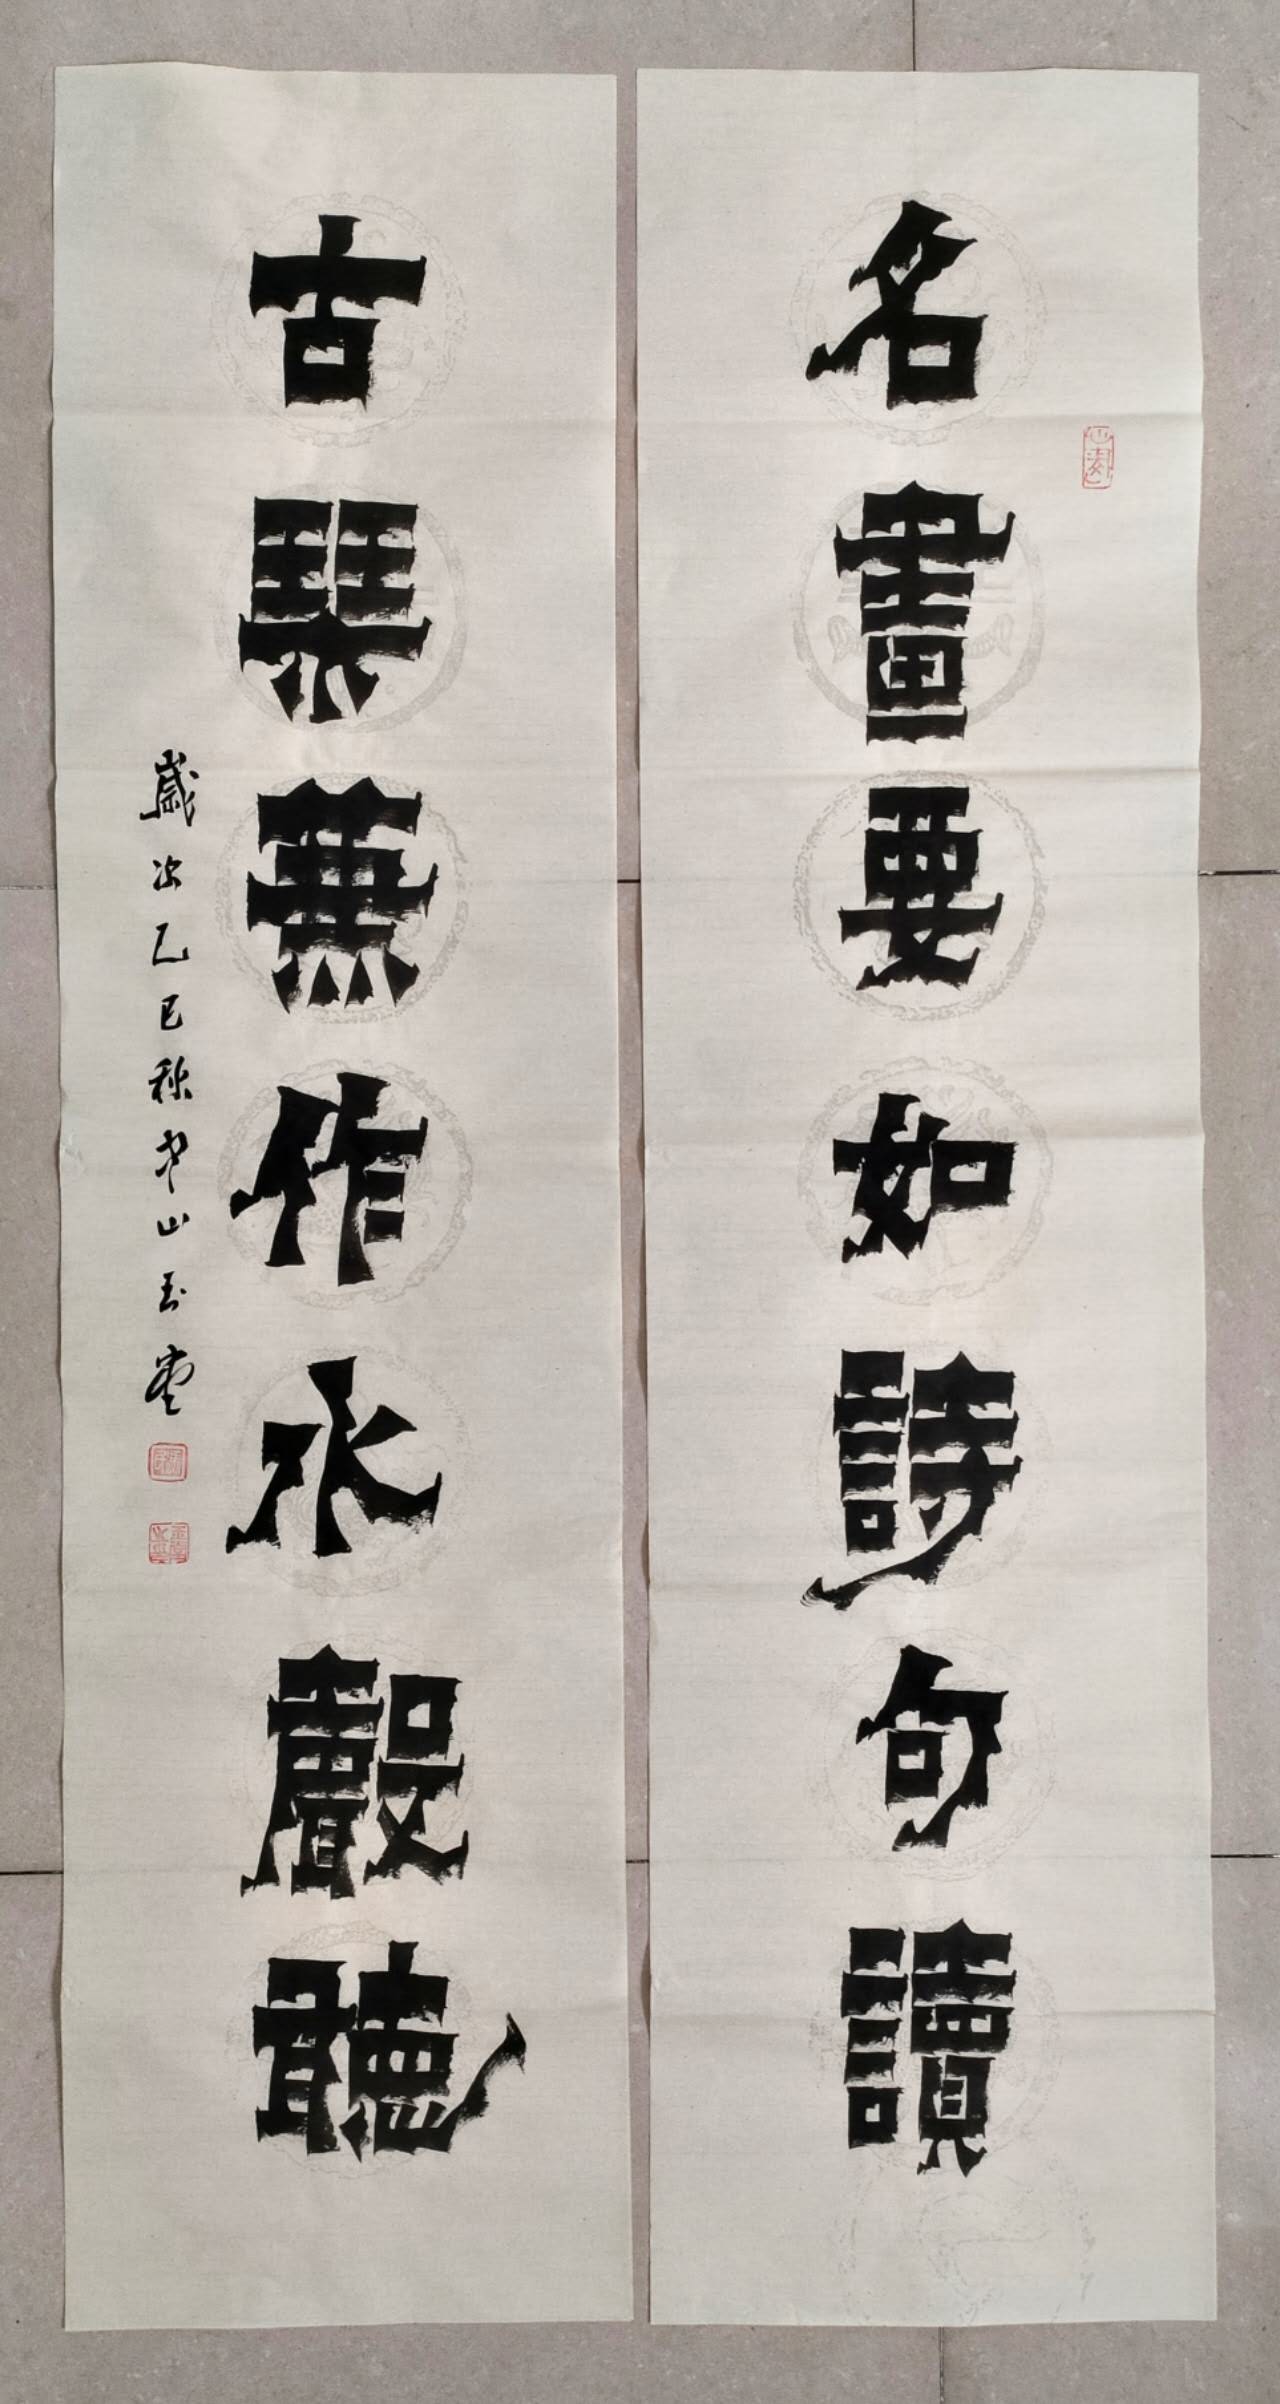 名畫要如詩句讀
古琴兼作水聲聽
歲次乙巳秋 山玉堂